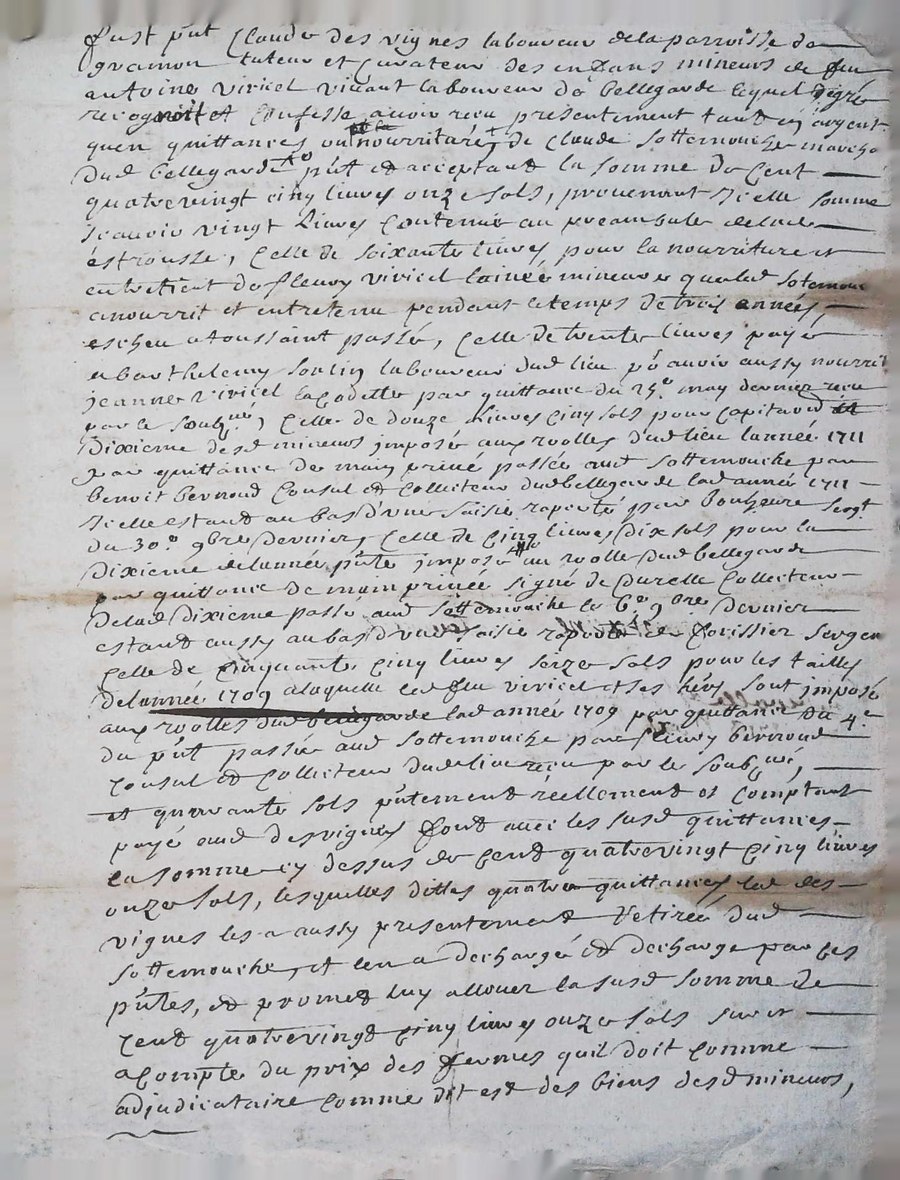 fust p'nt Claude des vignes laboureur de la parroisse de
gramon tuteur et Curateur des enfans mineurs de feu
antoine viriciel vivant laboureur de bellegarde lequel degré
recognoit et Confesse avoir receu presentement tant en argent
quen quittances ou nourritures de Claude Sottemouche march
dud bellegarde p'nt et acceptant la somme de Cent
quatrevingt cinq livres onze sols, provenant icelle somme
scavoir vingt livres Contenue au preambule de lad
estrousse, Celle de soixante livres pour la nourriture et
entretient de fleury viriciel lainée mineure que led Sotemou
a nourrit et entretenu pendant le temps de trois années,
escheu a toussaint passée, Celle de trente livres payé
a barthelemy soulin laboureur dud lieu p'r avoir aussy nourri
jeanne viriciel la Cadette par quittance du 25e may dernier receu
par le soubsné, Celle de douze livres Cinq sols pour Capita
dixieme desd mineurs imposée aux roolles dud lieu lannée 1711
par quittance de main privé passée aud Sottemouche par
benoit bernoud Consul et Collecteur dud bellegarde lad année 1711
icelle estant au bas d'une saisie raporté par sergt
du 30e 9bre dernier, Celle de Cinq livres dix sols pour la
dixieme de lannée p'nte imposée au roolle dud bellegarde
par quittance de main privée signé de Durelle Collecteur
de lad dixieme passé aud Sottemouche le 6e 9bre dernier
estant aussy au bas d'une saisie raportée de Corissier sergen
Celle de Cinquante Cinq livres seize sols pour les tailles
de lannée 1709 a laquelle led feu viriciel et ses hérs sont imposé
aux roolles dud bellegarde lad année 1709 par quittance du 4e
du p'nt passée aud Sottemouche par fleury bernoud
Consul et Collecteur dud lieu receu par le soubsné,
et quarante sols p'ntement réellement et Comptant
payé aud desvignes font avec les susd quittances
la somme cy dessus de Cent quatrevingt Cinq livres
onze sols, lesquelles dittes quatre quittances led des
vignes les a aussy presentement retirée dud
Sottemouche, et len a dechargé et decharge par ces
p'ntes, et promet luy allouer la susd somme de
Cent quatrevingt Cinq livres onze sols sur et
a Compte du prix des fermes quil doit Comme
adjudicataire Comme dit est des biens desd mineurs,